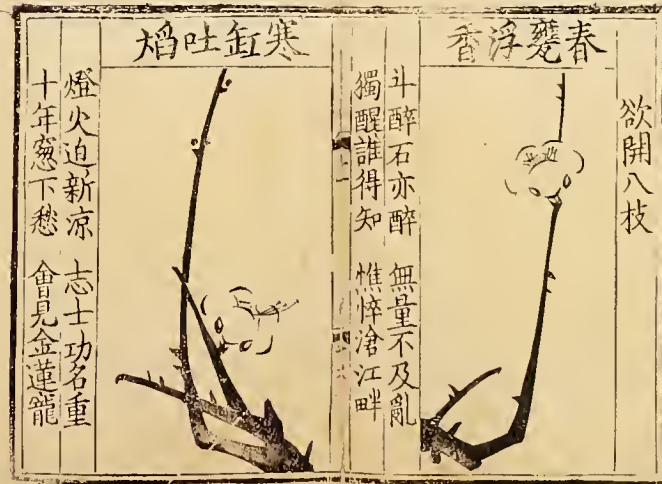 欲開八枝
春甕浮香
斗醉石亦醉 無量不及亂
獨醒誰得知 憔悴滄江畔
寒缸吐熖
燈火迫新凉 志士功名重
十年窻下愁 會見金蓮籠